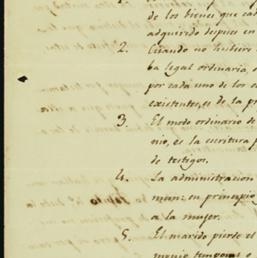 de los bienes que cad
adquirido despues en
2. Cuando no hubiere
ba legal ordinaria,
por cada uno de los
existentes, es de la pr
3. El modo ordinario de
nio, es la escritura p
de testigos.
4. La administracion
mun, en principio
a la muger.
5. El marido pierde el
monio temporal o